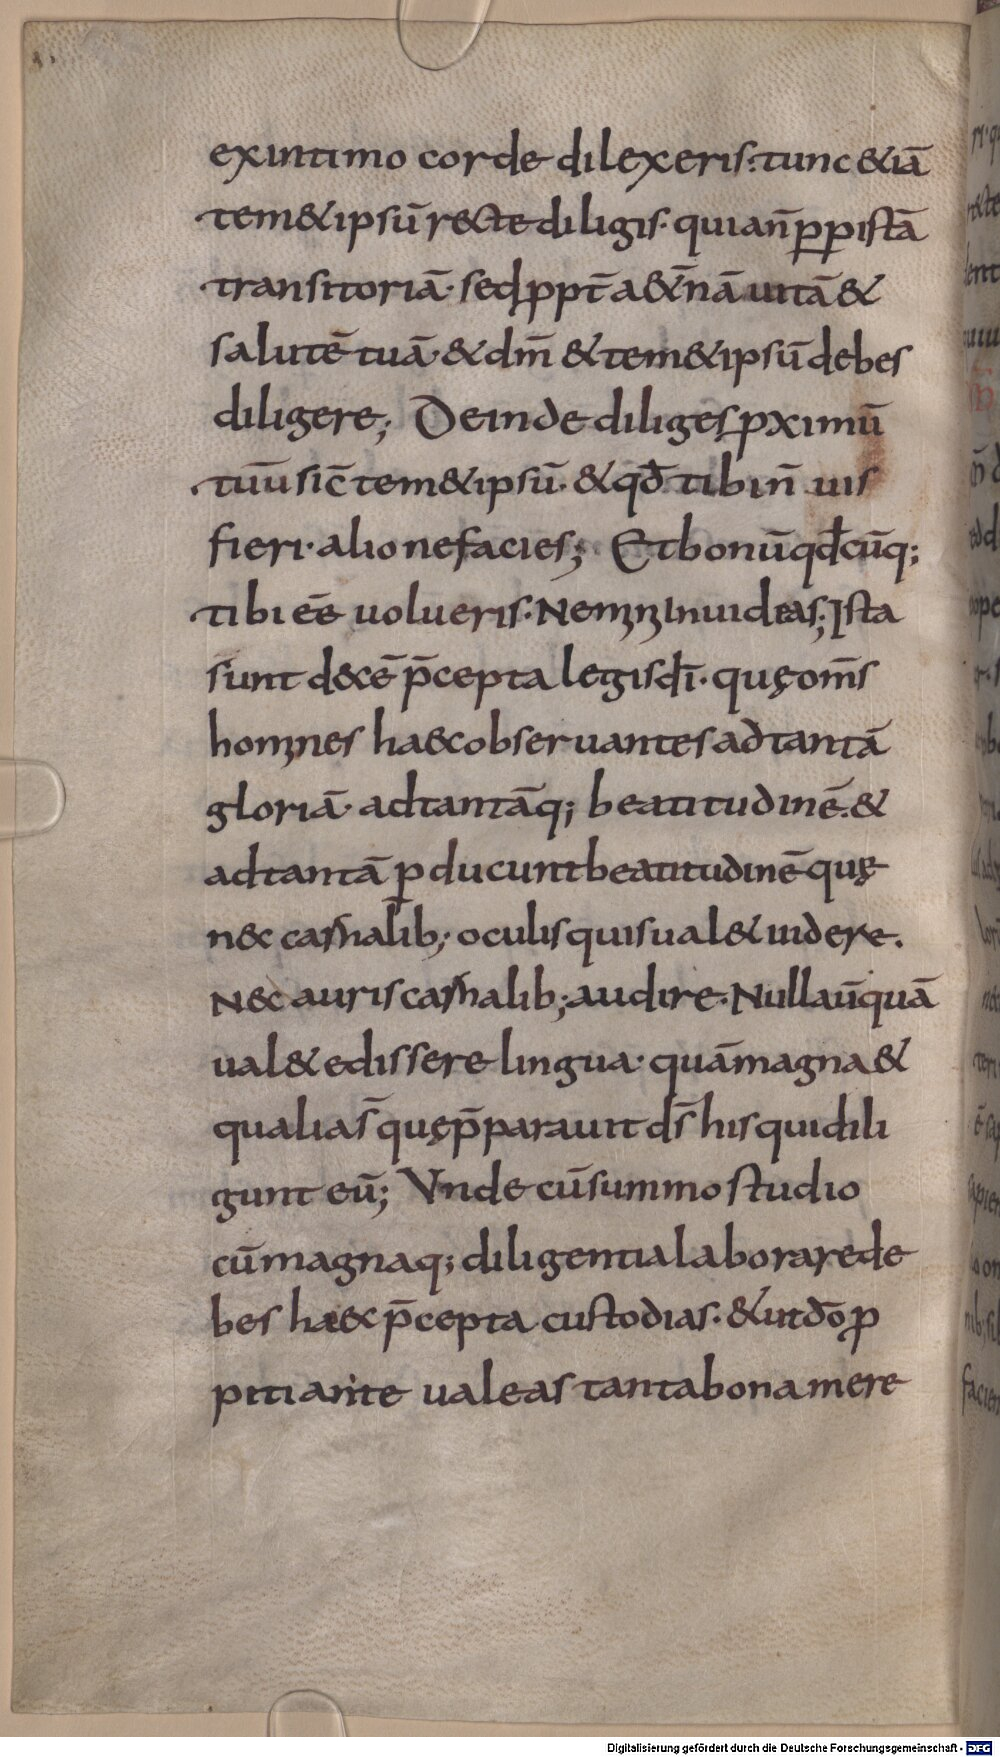 ex intimo corde dilexeris: tunc &iā
tem&ipsū recte diligis. quia n̄ ꝓp istā
transitoriā. sed ꝓpt̄ a&̄nā uitā &
salutē tuā. & dm̄ & tem&ipsū debes
diligere; Deinde diliges ꝓximū
tuū sic̄ tem&ipsū. & qđ tibi n̄ uis
fieri. alio ne facies; Et bonū qđcūq;
tibi eē uolueris. Nemini inuideas; Ista
sunt dece p̄cepta legis dī. quę om̄s
homines haec obseruantes ad tantā
gloriā. ad tantāq; beatitudinē. &
ad tantā ꝑducunt beatitudinē quę
nec carnalib; oculis quis ual& uidere.
Nec auris carnalib; audire. Nulla ūquā
ual& edissere lingua. quā magna &
qualia s̄ quę p̄parauit ds̄ his qui dili
gunt eū; Vnde cū summo studio
cū magnaq; diligentia laborare de
bes haec p̄cepta custodias. & ut dō ꝓ
pitiante ualeas tanta bona mere
Digitalisierung gefördert durch die Deutsche Forschungsgemeinschaft - DFG